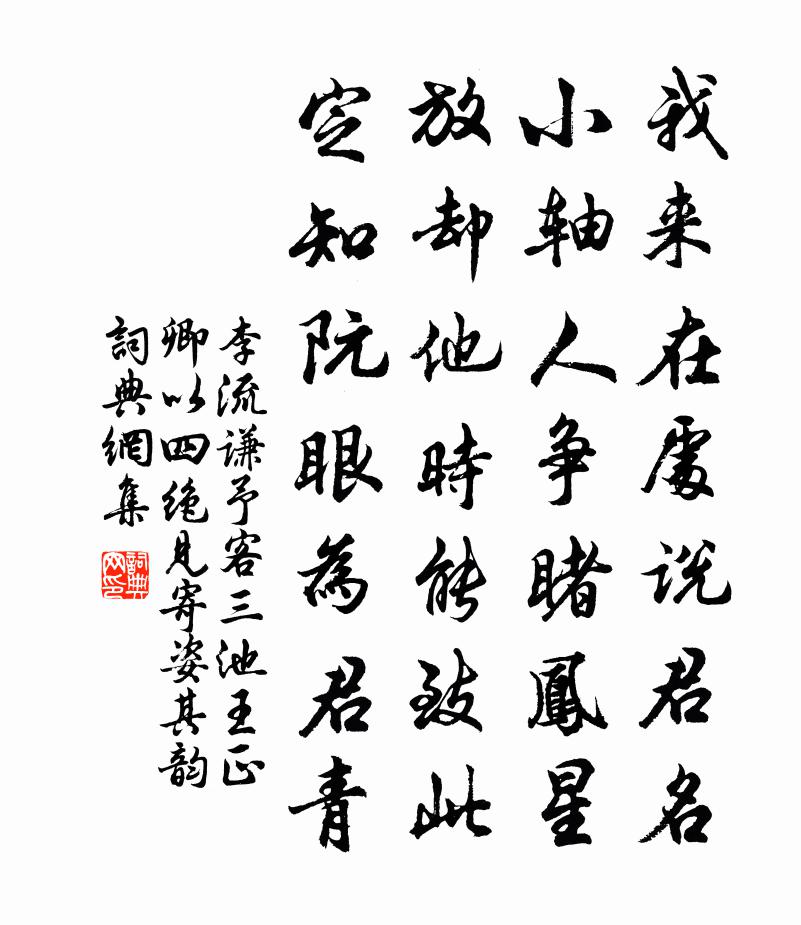 我来在處说君名
小轴人争睹鳳星
放却他時能致此
定知阮眼為君青
李流谦予客三池王正
卿以四绝見寄姿其韵
詞典網集
詞典网印